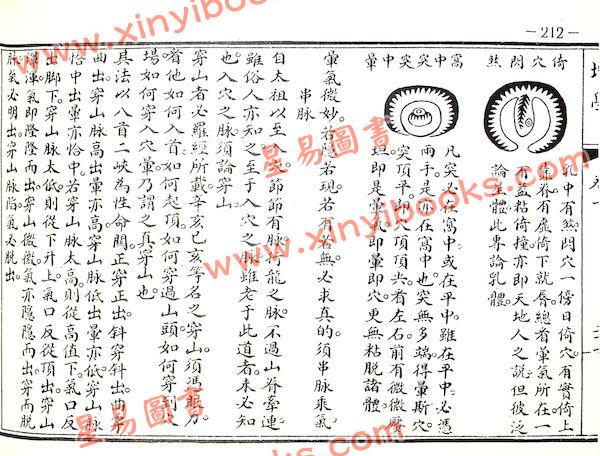 —212—
倚穴閃煞
乳中有煞閃穴一傍曰倚穴有實倚上
乘脊有虛倚下就唇總首暈氣所在一
有蓋粘倚撞亦即天地人之說但彼泛
論全體此專論乳體
窩中突突中暈
凡突必在窩中或在平中雖在平中必憑
兩手是亦在窩中也突無多端得暈斯穴
突頂平即穴頂頂尖看左右前有微微靨
坦即是暈氣即暈即穴更無粘脱諸體
暈氣微妙若隱若現若有若無必求真的須串脉乘氣
串脉
自太祖以至入首節節有脉行龍之脉不過山脊牽連
雖俗人亦知之至于入穴之脉雖老于此道者未必知
也入穴之脉須論穿山
穿山者必羅經所載辛亥乙亥等名之穿山須憑眼力
看他如何入首如何起頂如何穿過山頭如何穿到
場如何穿入穴暈乃謂之真穿山也
其法以八首二峽為性命關正穿正出斜穿斜出曲穿
曲出穿山脉高出暈亦高穿山脉低出暈亦低穿山脉
恰中出暈亦恰中若穿山脉太高則從高值下氣口反
出脚下穿山脉太低則從下升上氣口反從頂出穿山
渾渾氣即隆隆而出穿山微微氣亦隱隱而出穿而脱
脉氣必明出穿山脉陷氣必脱出
星易圖書
www.xinyibooks.com
星易圖書
www.xinyibooks.com
星易圖書
www.xinyibooks.com